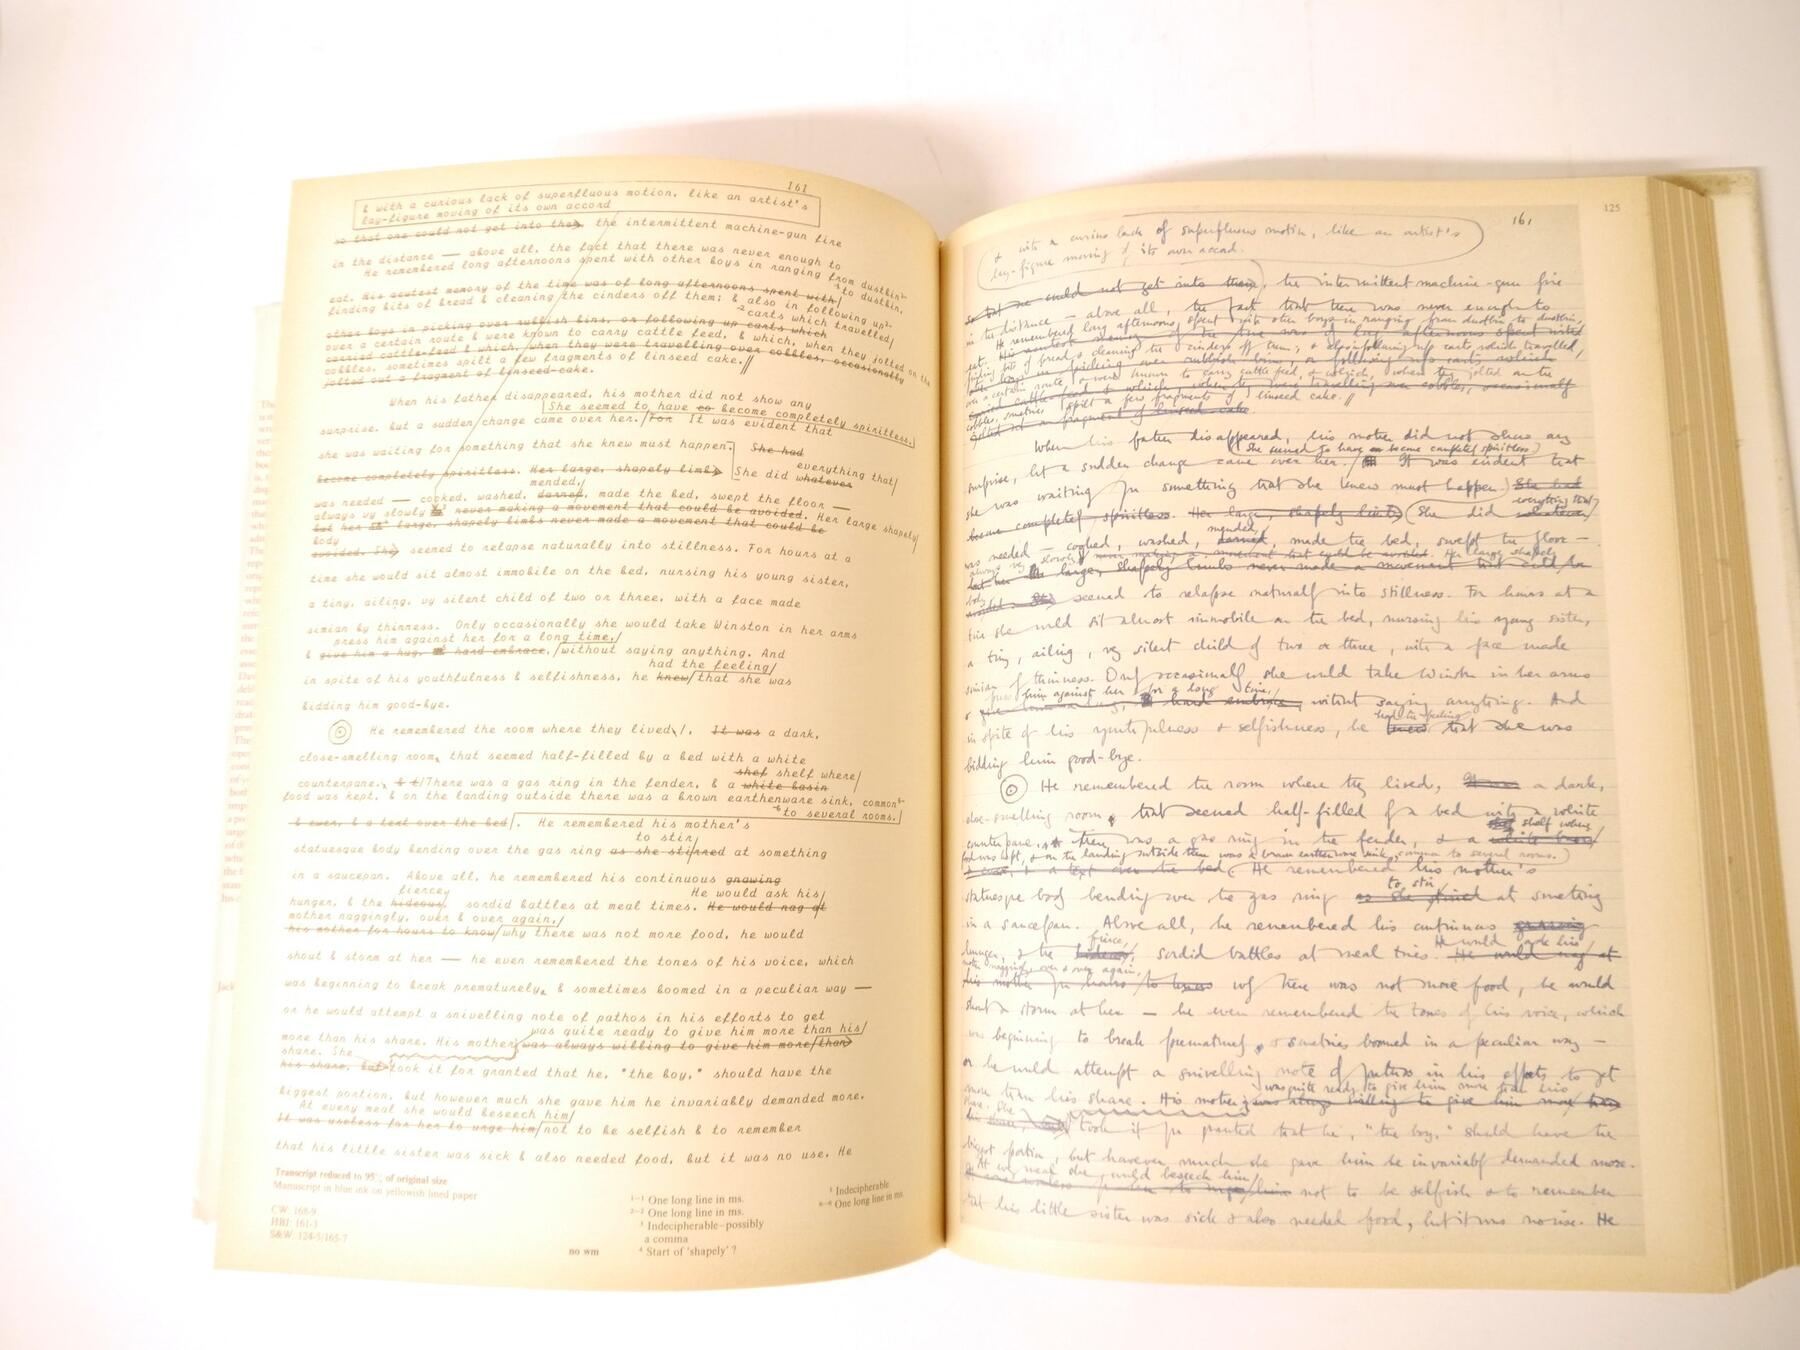 161
& with a curious lack of superfluous motion, like an artist's
lay-figure moving of its own accord
so that one could not get into them, the intermittent machine-gun fire
in the distance — above all, the fact that there was never enough to
He remembered long afternoons spent with other boys in ranging from dustbin
to dustbin,
eat. His acutest memory of the time was of long afternoons spent with/
finding bits of bread & cleaning the cinders off them; & also in following up
carts which travelled/
other boys in picking over rubbish bins, or following up carts which
over a certain route & were known to carry cattle feed, & which, when they jolted on the
carried cattle-feed & which, when they were travelling over cobbles, occasionally
cobbles, sometimes spilt a few fragments of linseed cake.//
jolted out a fragment of linseed-cake.
When his father disappeared, his mother did not show any
She seemed to have so become completely spiritless.
surprise, but a sudden change came over her./For It was evident that
she was waiting for something that she knew must happen. She had
everything that/
become completely spiritless. Her large, shapely limbs She did whatever
mended,/
was needed — cooked, washed, darned, made the bed, swept the floor —
always vy slowly & never making a movement that could be avoided. Her large shapely/
but her large, shapely limbs never made a movement that could be
body
avoided. She seemed to relapse naturally into stillness. For hours at a
time she would sit almost immobile on the bed, nursing his young sister,
a tiny, ailing, vy silent child of two or three, with a face made
simian by thinness. Only occasionally she would take Winston in her arms
press him against her for a long time,/
& give him a hug, hard embrace,/without saying anything. And
had the feeling/
in spite of his youthfulness & selfishness, he knew/that she was
bidding him good-bye.
He remembered the room where they lived\/. It was a dark,
close-smelling room, that seemed half-filled by a bed with a white
shef shelf where/
counterpane. & t/There was a gas ring in the fender, & a white basin
food was kept, & on the landing outside there was a brown earthenware sink, common
to several rooms.
& ewer, & a text over the bed. He remembered his mother's
to stir/
statuesque body bending over the gas ring as she stirred at something
in a saucepan. Above all, he remembered his continuous gnawing
fiercey He would ask his/
hunger, & the hideous, sordid battles at meal times. He would nag at
mother naggingly, over & over again,/
his mother for hours to know/why there was not more food, he would
shout & storm at her — he even remembered the tones of his voice, which
was beginning to break prematurely, & sometimes boomed in a peculiar way —
or he would attempt a snivelling note of pathos in his efforts to get
was quite ready to give him more than his/
more than his share. His mother was always willing to give him more/than
share. She
his share, but took it for granted that he, "the boy," should have the
biggest portion, but however much she gave him he invariably demanded more.
At every meal she would beseech him/
It was useless for her to urge him/not to be selfish & to remember
that his little sister was sick & also needed food, but it was no use. He
Transcript reduced to 95% of original size
Manuscript in blue ink on yellowish lined paper
CW: 168-9
HBJ: 161-3
S&W: 124-5/165-7
no wm
1-1 One long line in ms.
2-2 One long line in ms.
3 Indecipherable–possibly
a comma
4 Start of 'shapely' ?
5 Indecipherable
6-6 One long line in ms.
125
161
& with a curious lack of superfluous motion, like an artist's
lay-figure moving of its own accord.
so that one could not get into them, the intermittent machine-gun fire
in the distance — above all, the fact that there was never enough to
He remembered long afternoons spent with other boys in ranging from dustbin to dustbin,
eat. His acutest memory of the time was of long afternoons spent with
finding bits of bread & cleaning the cinders off them; & also in following up carts which travelled/
other boys in picking over rubbish bins, or following up carts which
over a certain route & were known to carry cattle feed, & which, when they jolted on the
carried cattle-feed & which, when they were travelling over cobbles, occasionally
cobbles, sometimes spilt a few fragments of linseed cake.//
jolted out a fragment of linseed cake
When his father disappeared, his mother did not show any
She seemed to have so become completely spiritless
surprise, but a sudden change came over her. It was evident that
she was waiting for something that she knew must happen. She had
everything that/
become completely spiritless. Her large, shapely limbs She did whatever
mended,
was needed — cooked, washed, darned, made the bed, swept the floor —
always vy slowly never making a movement that could be avoided. Her large shapely
but her large, shapely limbs never made a movement that could be
body
avoided. She seemed to relapse naturally into stillness. For hours at a
time she would sit almost immobile on the bed, nursing his young sister,
a tiny, ailing, vy silent child of two or three, with a face made
simian by thinness. Only occasionally she would take Winston in her arms
press him against her for a long time,/
& give him a hug, hard embrace, without saying anything. And
had the feeling
in spite of his youthfulness & selfishness, he knew that she was
bidding him good-bye.
He remembered the room where they lived, It was a dark,
close-smelling room, that seemed half-filled by a bed with a white
shef shelf where
counterpane. & there was a gas ring in the fender, & a white basin/
food was kept, & on the landing outside there was a brown earthenware sink, common to several rooms.
& ewer, & a text over the bed. He remembered his mother's
to stir
statuesque body bending over the gas ring as she stirred at something
in a saucepan. Above all, he remembered his continuous gnawing
fierce, He would ask his/
hunger, & the hideous, sordid battles at meal times. He would nag at
mother naggingly, over & over again,
his mother for hours/to know why there was not more food, he would
shout & storm at her — he even remembered the tones of his voice, which
was beginning to break prematurely, & sometimes boomed in a peculiar way —
or he would attempt a snivelling note of pathos in his efforts to get
was quite ready to give him more than his
more than his share. His mother was always willing to give him more than
share. She
his share, but took it for granted that he, "the boy," should have the
biggest portion, but however much she gave him he invariably demanded more.
At every meal she would beseech him
It was useless for her to urge/him not to be selfish & to remember
that his little sister was sick & also needed food, but it was no use. He